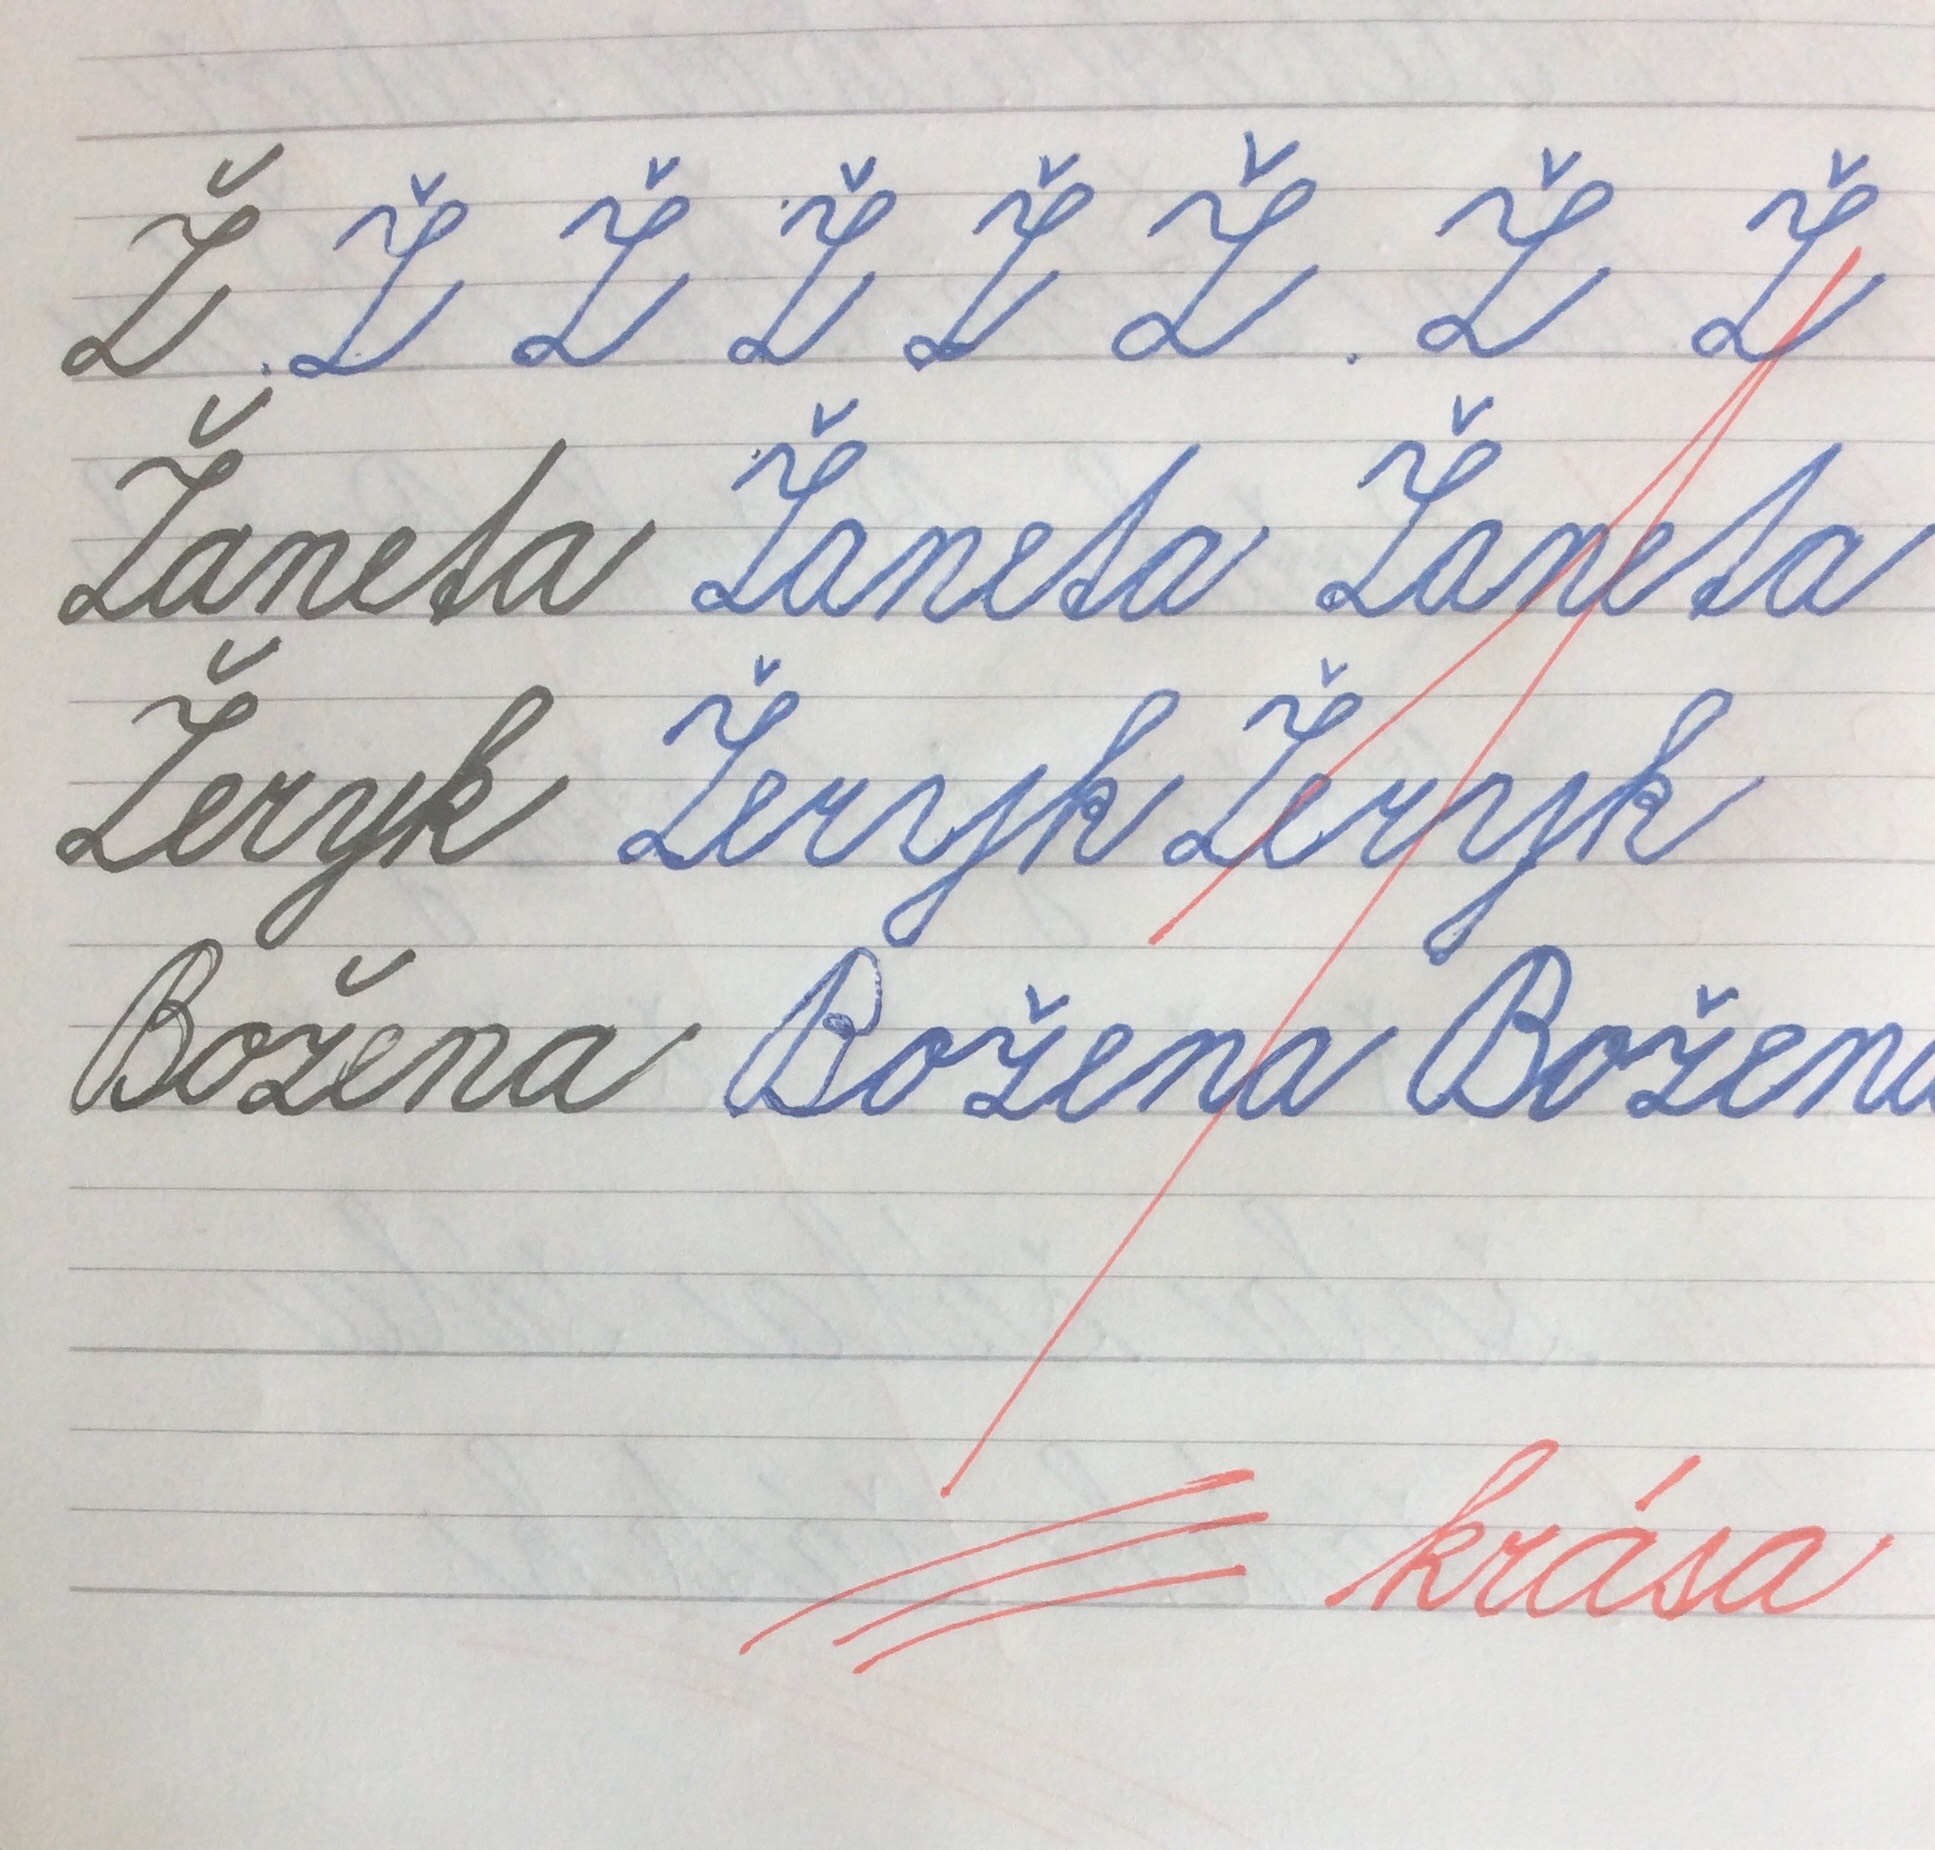 Ž Ž Ž Ž Ž Ž Ž Ž
Žaneta Žaneta Žaneta
Žeryk Žeryk Žeryk
Božena Božena Božena
krása